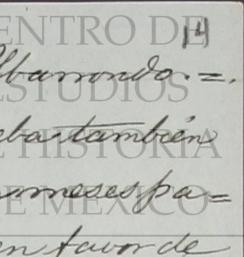 14
CENTRO DE
ESTUDIOS
DE HISTORIA
DE MEXICO
Ybarrondo.=.
eba también
meses pa=
en favor de